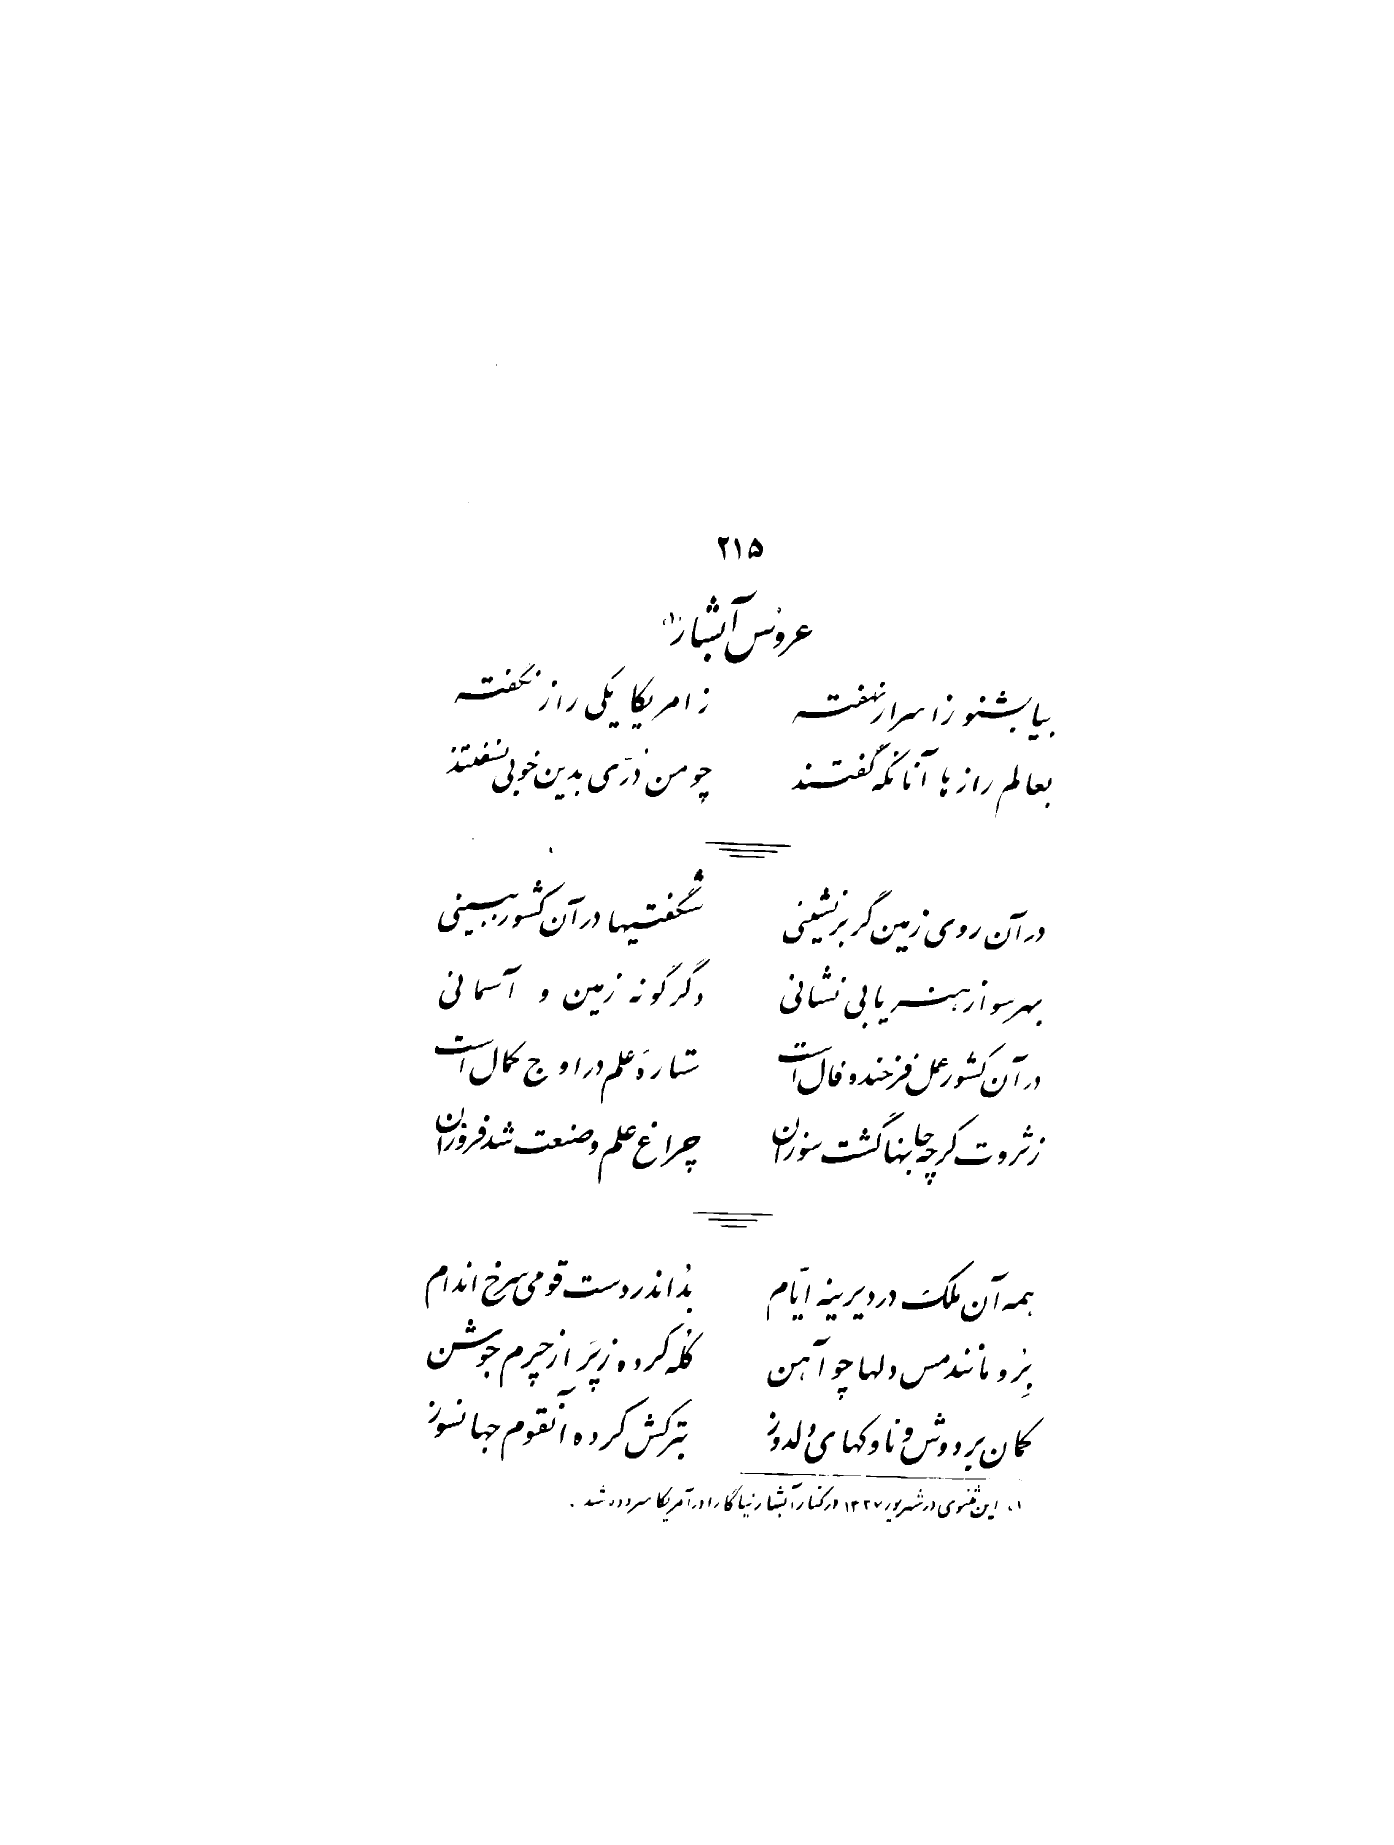 ۲۱۵
عروس آبشار (۱)
بیا بشنو ز اسرار نهفته    ز امریکا یکی راز نگفته
بعالم رازها آنانکه گفتند    چو من دُرّی بدین خوبی نسفتند
در آن روی زمین گر برنشینی    شگفتیها در آن کشور ببینی
بهر سو از هنر یابی نشانی    دگرگونه زمین و آسمانی
در آن کشور عمل فرخنده فال است    ستارهٔ علم در اوج کمال است
ز ثروت گرچه جانها گشت سوزان    چراغ علم و صنعت شد فروزان
همه آن ملک در دیرینه ایّام    بُد اندر دست قومی سرخ اندام
برو مانند مس دلها چو آهن    کُله کرده ز پَر از چرم جوشن
کمان بر دوش و ناوکهای دلدوز    بترکش کرده آنقوم جهانسوز
۱. این مثنوی در شهریور ۱۳۲۷ در کنار آبشار نیاگارا در آمریکا سروده شد.